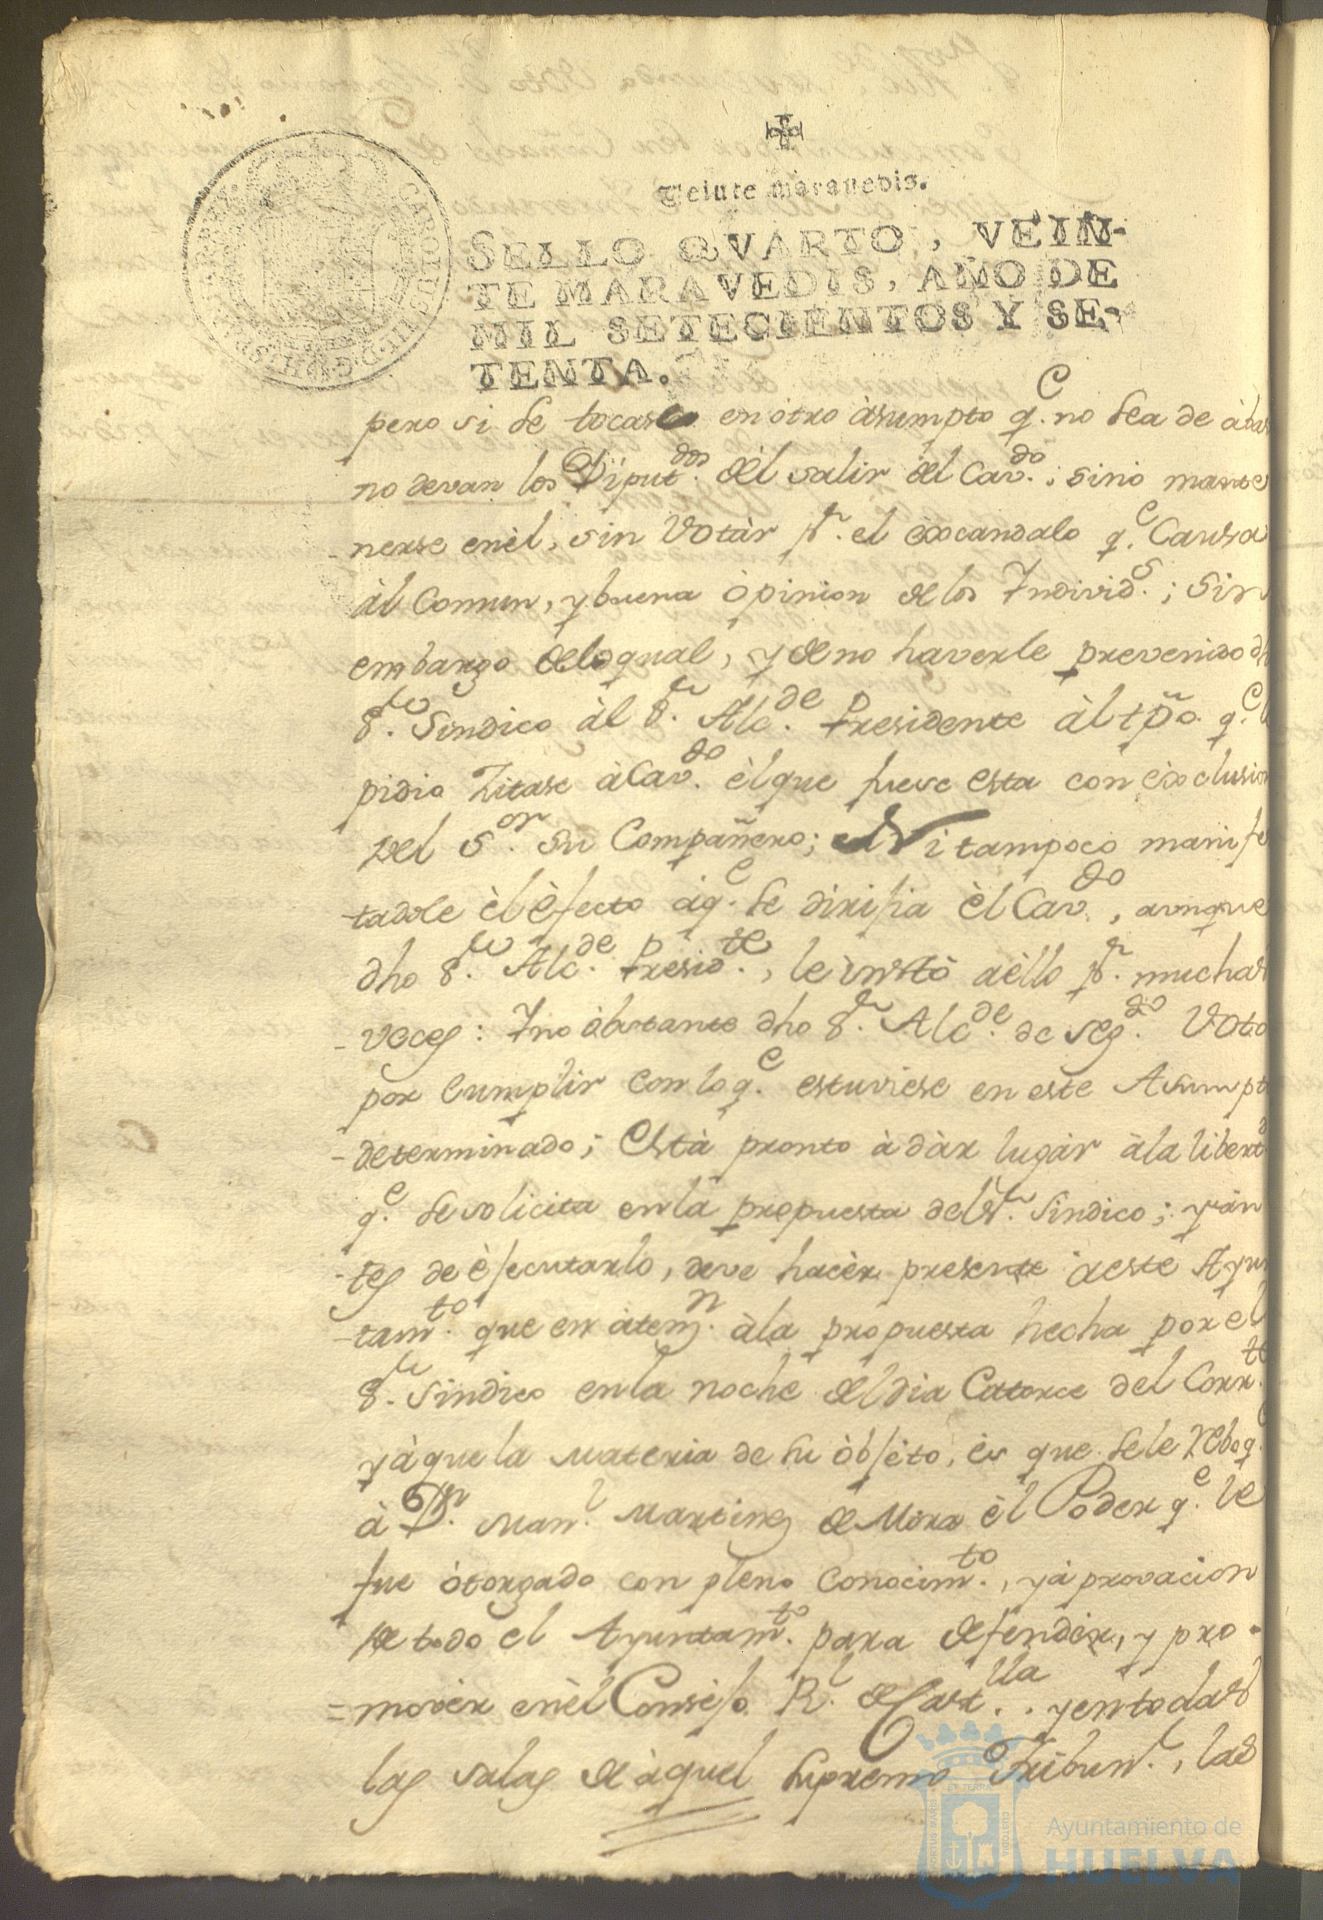 Veinte maravedis.
SELLO QVARTO, VEIN-
TE MARAVEDIS, AÑO DE
MIL SETECIENTOS Y SE-
TENTA.
pero si se tocase en otro àsumpto q.e no sea de àbas
no devan los Diput.dos del salir del Cav.do; sinó mante
nerse enèl, sin Votàr p.r el excandalo q.e Causa
àl Comun, y buena òpinion de los Individ.s; Sin
embargo delo qual, y de no haverle prevenido dh
S.r Sindico àl S.r Alc.de Presidente àl tpõ. q.e
pidio Zitase àCav.do èl que fuese esta con exclusion
del S.or su Compañero; Ni tampoco manifes
tadole èl èfecto àq.e se dirijia èl Cav.do, aunque
dho S.r Alc.de Presid.te, le instò aèllo p.r muchas
veces: Ino òbstante dho S.r Alc.de de seg.do Voto
por Cumplir con lo q.e estuviese en este Asumpto
determinado; Està pronto à dàr lugàr àla libert.d
q.e se solicita en la propuesta del S.r Sindico; y àn
tes de èjecutarlo, deve hacèr presente àeste Ayun
tam.to que en àten.n àla propuesta hecha por el
S.r Sindico en la noche del dia Catorce del Corr.te
y à que la Materia de su òbjèto, ès que sele reboq.e
à D.n Man.l Martinez de Mora èl Poder q.e le
fue òtorgado con pleno Conocim.to, y àprovacion
de todo el Ayuntam.to para defendèr, y pro-
movèr enèl Consèjo R.l de Cast.lla y en todas
las salas de àquel Supremo Tribun.l, las
Ayuntamiento de
HUELVA